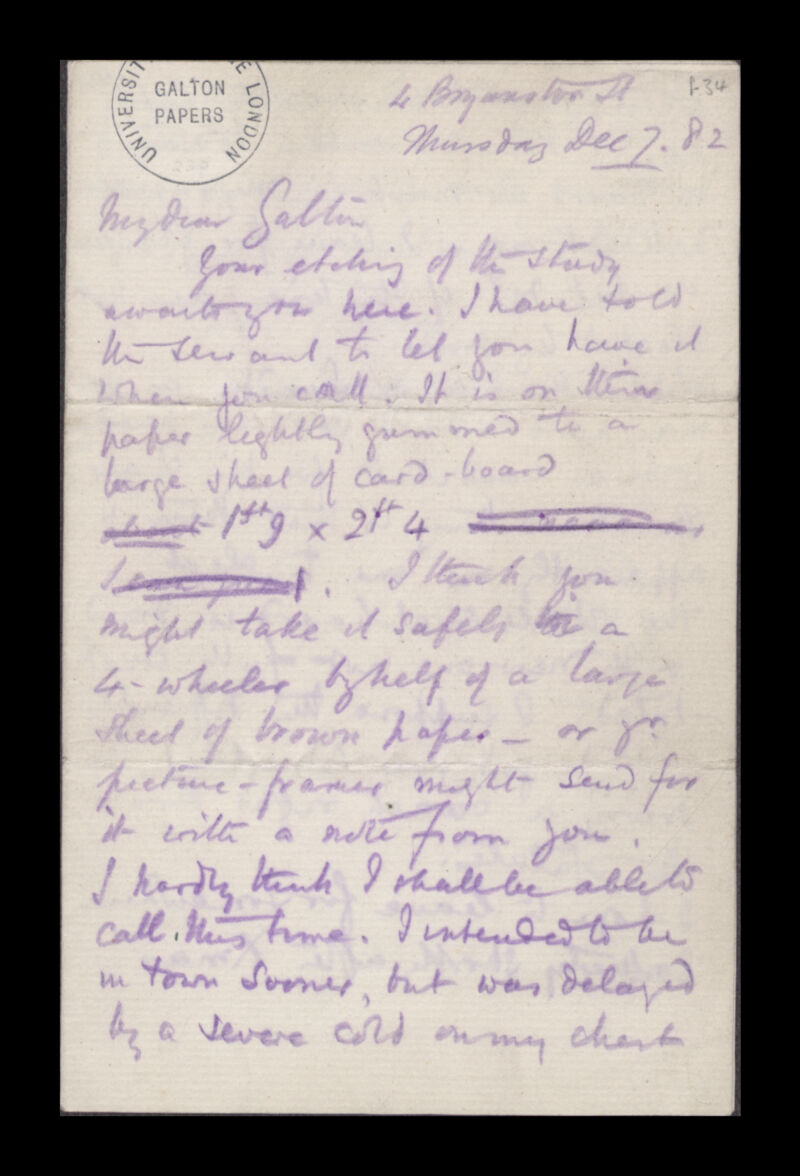 UNIVERSITY COLLEGE LONDON
GALTON
PAPERS
f34
4 Bryanston St
Thursday Dec 7. 82
My dear Galton
Your etching of the study
awaits you here. I have told
the servant to let you have it
when you call: It is on thin
paper lightly gummed to a
large sheet of card-board
about 1ft 9 x 2ft 4
I think you
might take it safely in a
4-wheeler by help of a large
sheet of brown paper – or yr
picture-framer might send for
it with a note from you.
I hardly think I shall be able to
call this time. I intended to be
in town sooner, but was delayed
by a severe cold on my chest